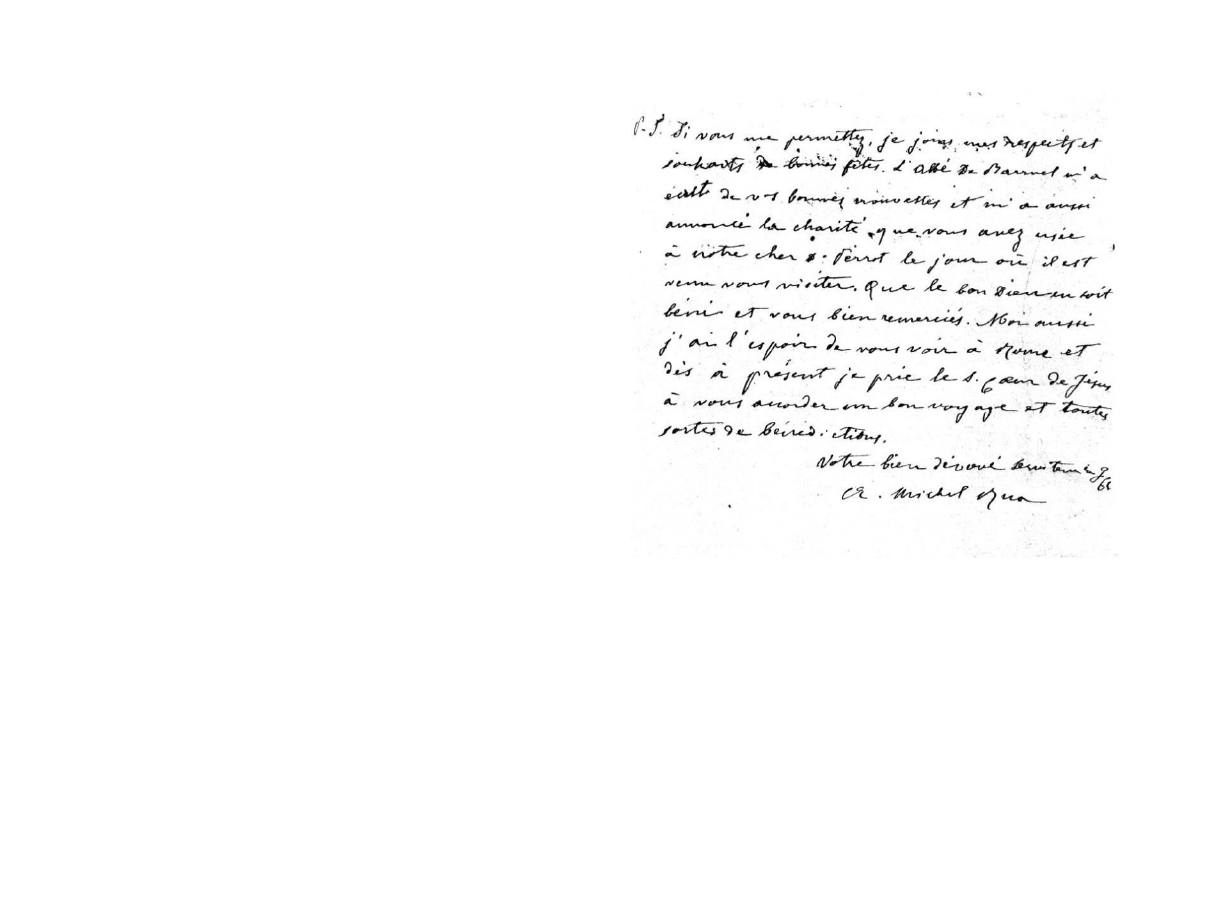 P.S. Si vous me permettez, je joins mes respects et
souhaits de bonnes fêtes. L'abbé De Barruel m'a
écrit de vos bonnes nouvelles et m'a aussi
annoncé la charité que vous avez usée
à notre cher D. Perrot le jour où il est
venu vous visiter. Que le bon Dieu en soit
béni et vous bien remerciés. Moi aussi
j'ai l'espoir de vous voir à Rome et
dès à présent je prie le S. Cœur de Jésus
à vous accorder un bon voyage et toutes
sortes de bénédictions.
Votre bien dévoué serviteur en J.
Michel Rua